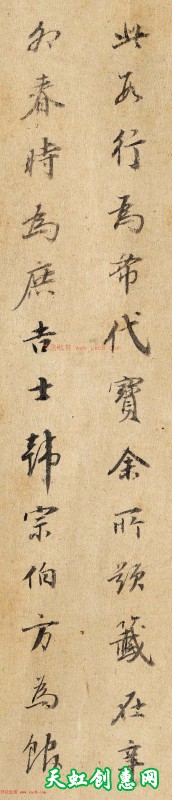 此行為希代寶余所題籤在辛
卯春時為庶吉士韓宗伯方為館
天虹创惠网